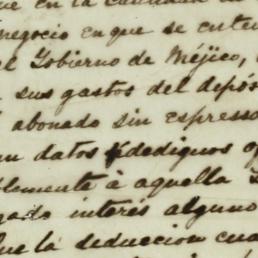 que en la cantidad
negocio en que se
el Gobierno de Méjico,
sus gastos del depós
abonado sin espreso
datos fidedignos
lemente à aquella
interés alguno
que la deduccion cua